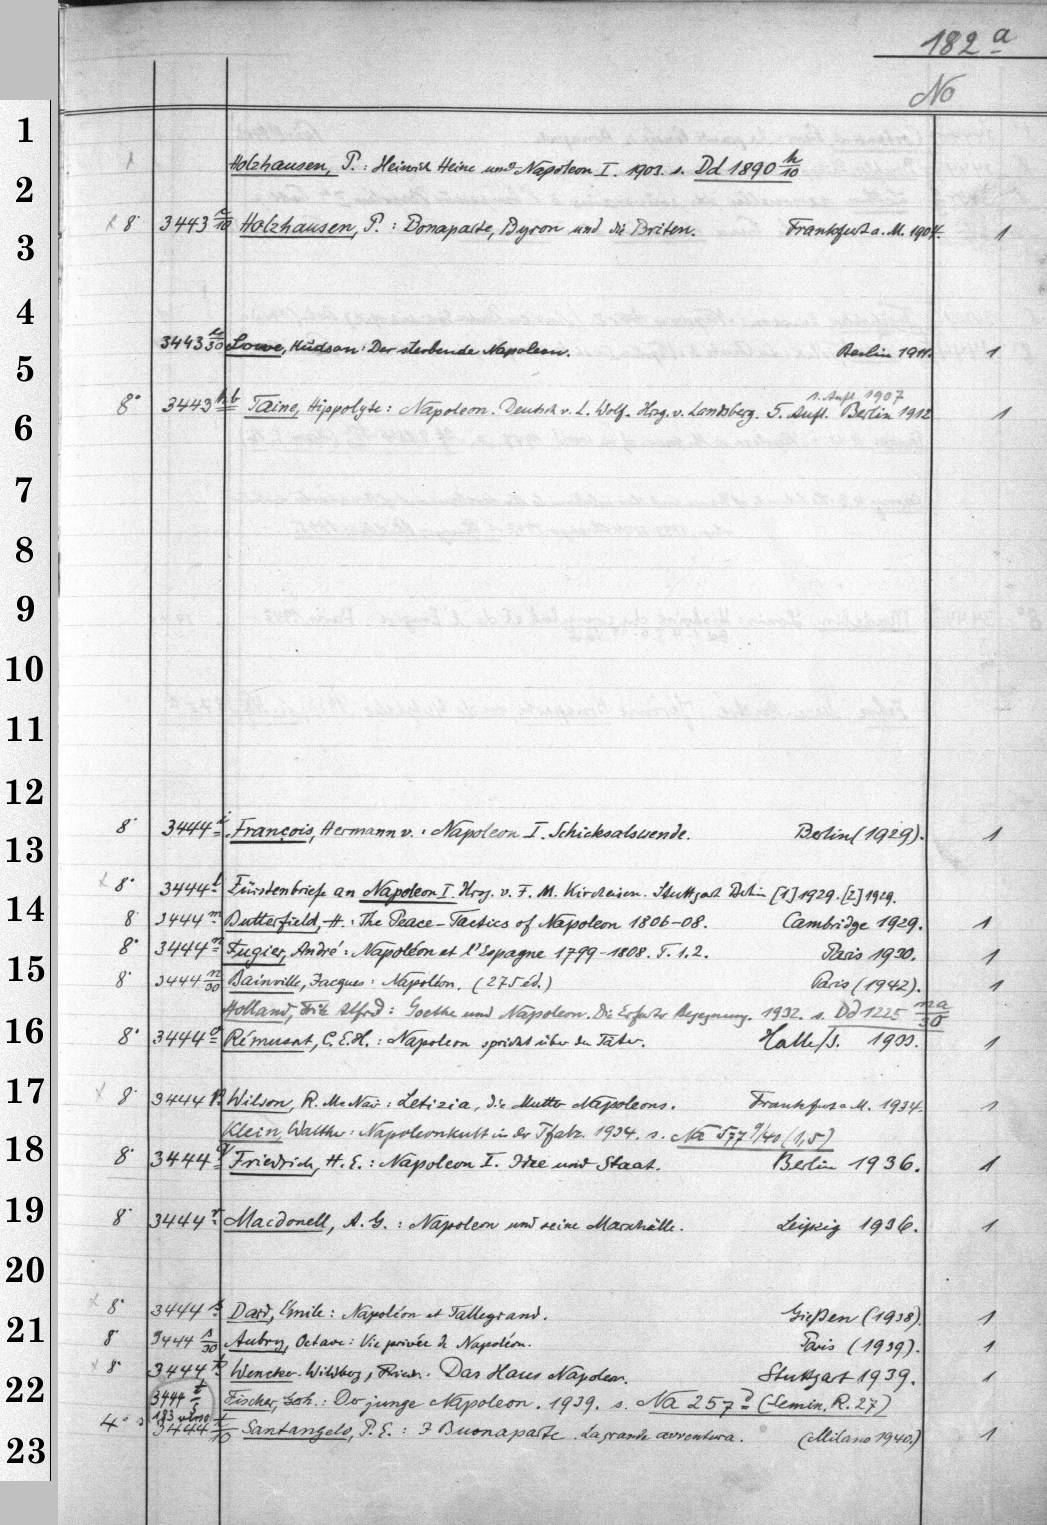 182 a
No
1
2
3
4
5
6
7
8
9
10
11
12
13
14
15
16
17
18
19
20
21
22
23
Holzhausen, P.: Heinrich Heine und Napoleon I. 1903. s. Dd 1890 h/10
8° 3443 a/10 Holzhausen, P.: Bonaparte, Byron und die Briten. Frankfurt a. M. 1904. 1
3443 a/30 Lowe, Hudson: Der sterbende Napoleon. Berlin 1911. 1
1. Aufl. 1907
8° 3443 b Taine, Hippolyte: Napoleon. Deutsch v. L. Wolf. Hrsg. v. Landsberg. 5. Aufl. Berlin 1912 1
8° 3444 i François, Hermann v.: Napoleon I. Schicksalswende. Berlin (1929). 1
8° 3444 l Fürstenbriefe an Napoleon I. Hrsg. v. F. M. Kircheisen. Stuttgart Berlin [1] 1929. [2] 1929.
8° 3444 m Butterfield, H.: The Peace-Tactics of Napoleon 1806-08. Cambridge 1929. 1
8° 3444 n Fugier, André: Napoléon et l'Espagne 1799-1808. T. 1.2. Paris 1930. 1
8° 3444 n/30 Bainville, Jacques: Napoléon. (275 éd.) Paris (1942). 1
Holland, Fritz Alfred: Goethe und Napoleon. Die Erfurter Begegnung. 1932. s. Dd 1225 na/30
8° 3444 o Rémusat, C. E. H.: Napoleon spricht über den Täter. Halle/S. 1933. 1
8° 3444 p Wilson, R. Mc Nair: Letizia, die Mutter Napoleons. Frankfurt a. M. 1934. 1
Klein, Walther: Napoleonkult in der Pfalz. 1934. s. Na 577 q/40 (1,5)
8° 3444 q Friedrich, H. E.: Napoleon I. Idee und Staat. Berlin 1936. 1
8° 3444 r Macdonell, A. G.: Napoleon und seine Marschälle. Leipzig 1936. 1
8° 3444 s Dard, Émile: Napoléon et Talleyrand. Gießen (1938). 1
8° 3444 s/30 Aubry, Octave: Vie privée de Napoléon. Paris (1939). 1
8° 3444 t Wencker-Wildberg, Friedr. Das Haus Napoleon. Stuttgart 1939. 1
3444 t/5 Fischer, Joh.: Der junge Napoleon. 1939. s. Na 257 d (Semin. R. 27)
183 verso
4° 3444 t/10 Santangelo, P. E.: I Buonaparte. La grande avventura. (Milano 1940.) 1